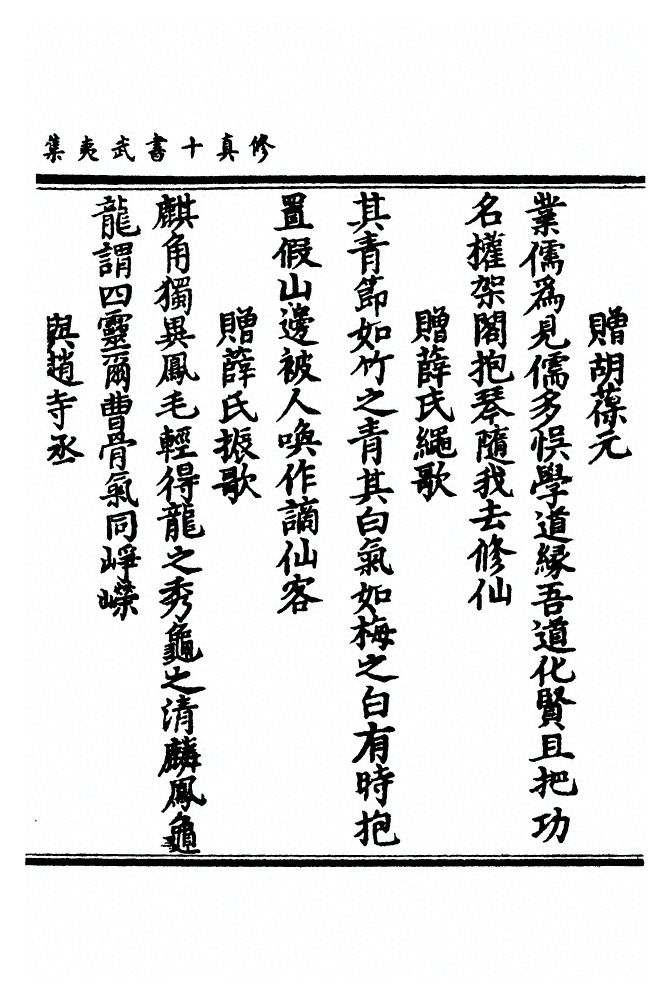 修真十書武夷集
贈胡葆元
業儒爲見儒多悞學道緣吾道化賢且把功
名權架閣抱琴隨我去修仙
贈薛氏繩歌
其青節如竹之青其白氣如梅之白有時抱
置假山邊被人喚作謫仙客
贈薛氏振歌
麒角獨異鳳毛輕得龍之秀龜之清麟鳳龜
龍謂四靈爾曹骨氣同崢嶸
與趙寺丞